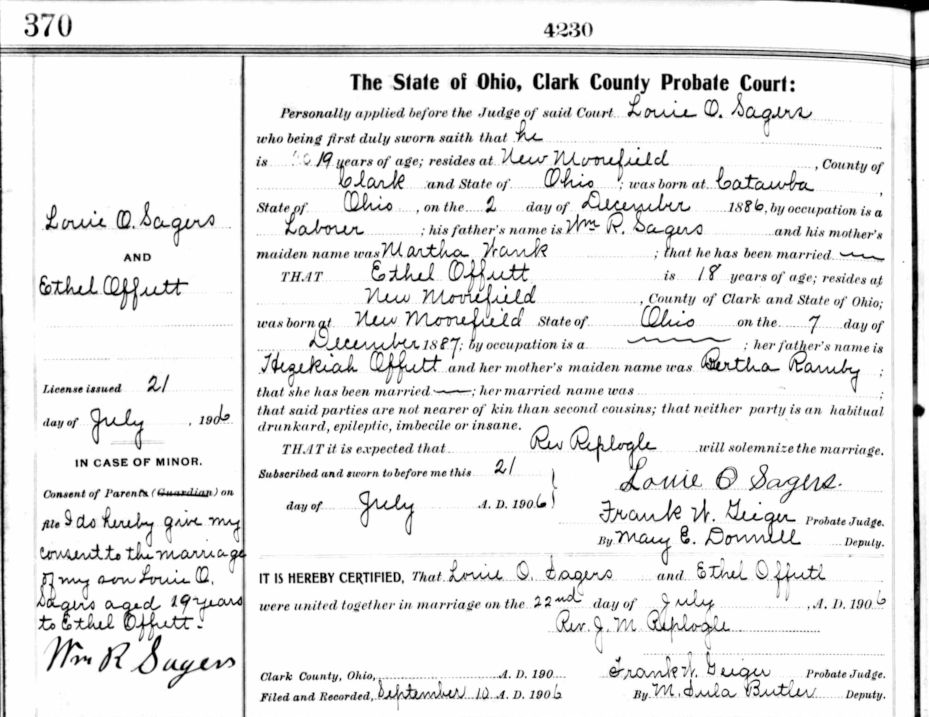 370
4230
Louie O. Sagers
AND
Ethel Offutt
License issued 21
day of July, 1906
IN CASE OF MINOR.
Consent of Parents (Guardian) on
file I do hereby give my
consent to the marriage
of my son Louie O.
Sagers aged 19 years
to Ethel Offutt.
Wm R Sagers
The State of Ohio, Clark County Probate Court:
Personally applied before the Judge of said Court Louie O. Sagers
who being first duly sworn saith that he
is 19 years of age; resides at New Moorefield, County of
Clark and State of Ohio; was born at Catawba,
State of Ohio, on the 2 day of December 1886, by occupation is a
Laborer; his father's name is Wm R. Sagers and his mother's
maiden name was Martha Wank; that he has been married
THAT Ethel Offutt is 18 years of age; resides at
New Moorefield, County of Clark and State of Ohio;
was born at New Moorefield State of Ohio on the 7 day of
December 1887; by occupation is a ; her father's name is
Hezekiah Offutt and her mother's maiden name was Bertha Ramby;
that she has been married ; her married name was ;
that said parties are not nearer of kin than second cousins; that neither party is an habitual
drunkard, epileptic, imbecile or insane.
THAT it is expected that Rev Replogle will solemnize the marriage.
Subscribed and sworn to before me this 21
day of July A. D. 1906
Louie O Sagers.
Frank W. Geiger Probate Judge.
By Mary E. Donnell Deputy.
IT IS HEREBY CERTIFIED, That Louie O. Sagers and Ethel Offutt
were united together in marriage on the 22nd day of July, A. D. 1906
Rev. J. M. Replogle
Clark County, Ohio, A. D. 190 Frank W. Geiger Probate Judge.
Filed and Recorded, September 10 A. D. 1906 By M. Lula Butler Deputy.